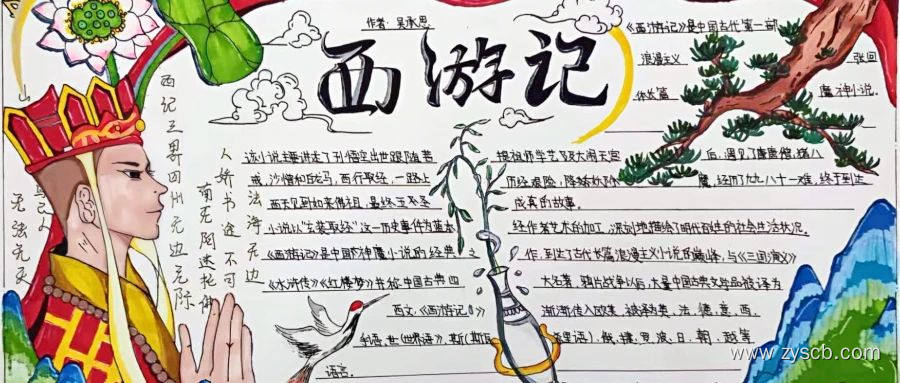 作者:吴承恩
西游记
《西游记》是中国古代第一部
浪漫主义 章回
体长篇 魔神小说.
西记三界四州无边无际
法海无边
无法无天
该小说主要讲述了孙悟空出世跟随菩 提祖师学艺及大闹天宫 后,遇见了唐唐僧,猪八
戒,沙僧和白龙马,西行取经,一路上 历经艰险,降妖 魔,经历了九九八十一难,终于到达
西天见到如来佛祖,最终五圣 成真的故事.
小说以"玄奘取经"这一历史事件为蓝本 经作者艺术的加工,深刻地描绘了明代百姓的社会生活状况.
《西游记》是中国神魔小说的经典之 作,到达了古代长篇浪漫主义小说的巅峰,与《三国演义》
《水浒传》《红楼梦》并称中国古典四 大名著,鸦片战争以后,大量中国古典文学作品被译为
西文,《西游记》 渐渐传入欧美,被译为英,法,德,意,西,
手语,世(世界语),斯(斯瓦希里语),俄,捷,罗,波,日,朝,越等
语言.
www.zyscb.com